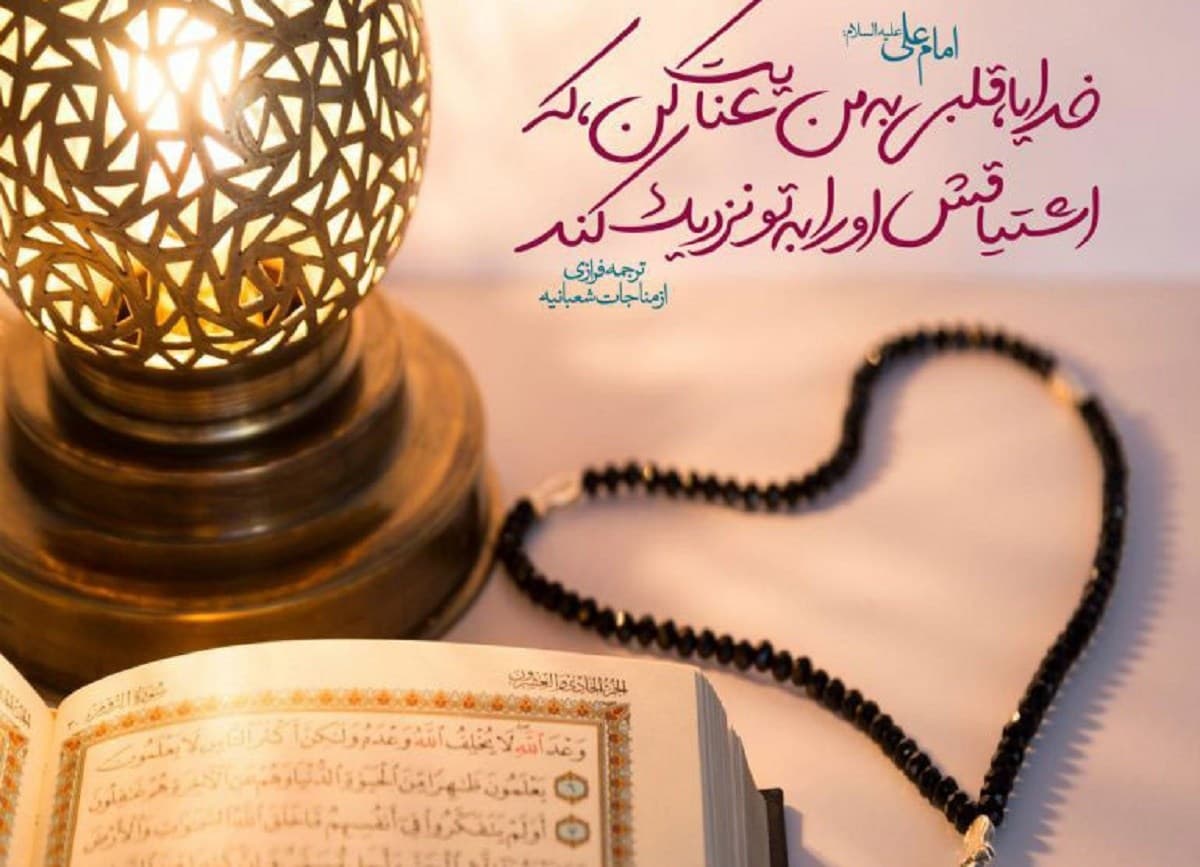 امام علی علیه السلام:
خدایا، قلبی به من عنایت کن، که
اشتیاقش او را به تو نزدیک کند
ترجمه فرازی
از مناجات شعبانیه
الجزء الحادي والعشرون
سورة الروم ٣٠
وَعْدَ ٱللَّهِ لَا يُخْلِفُ ٱللَّهُ وَعْدَهُ وَلَٰكِنَّ أَكْثَرَ ٱلنَّاسِ لَا يَعْلَمُونَ
٦ يَعْلَمُونَ ظَٰهِرًا مِّنَ ٱلْحَيَوٰةِ ٱلدُّنْيَا وَهُمْ عَنِ ٱلْءَاخِرَةِ هُمْ غَٰفِلُونَ
٧ أَوَلَمْ يَتَفَكَّرُوا۟ فِىٓ أَنفُسِهِم مَّا خَلَقَ ٱللَّهُ ٱلسَّمَٰوَٰتِ وَٱلْأَرْضَ